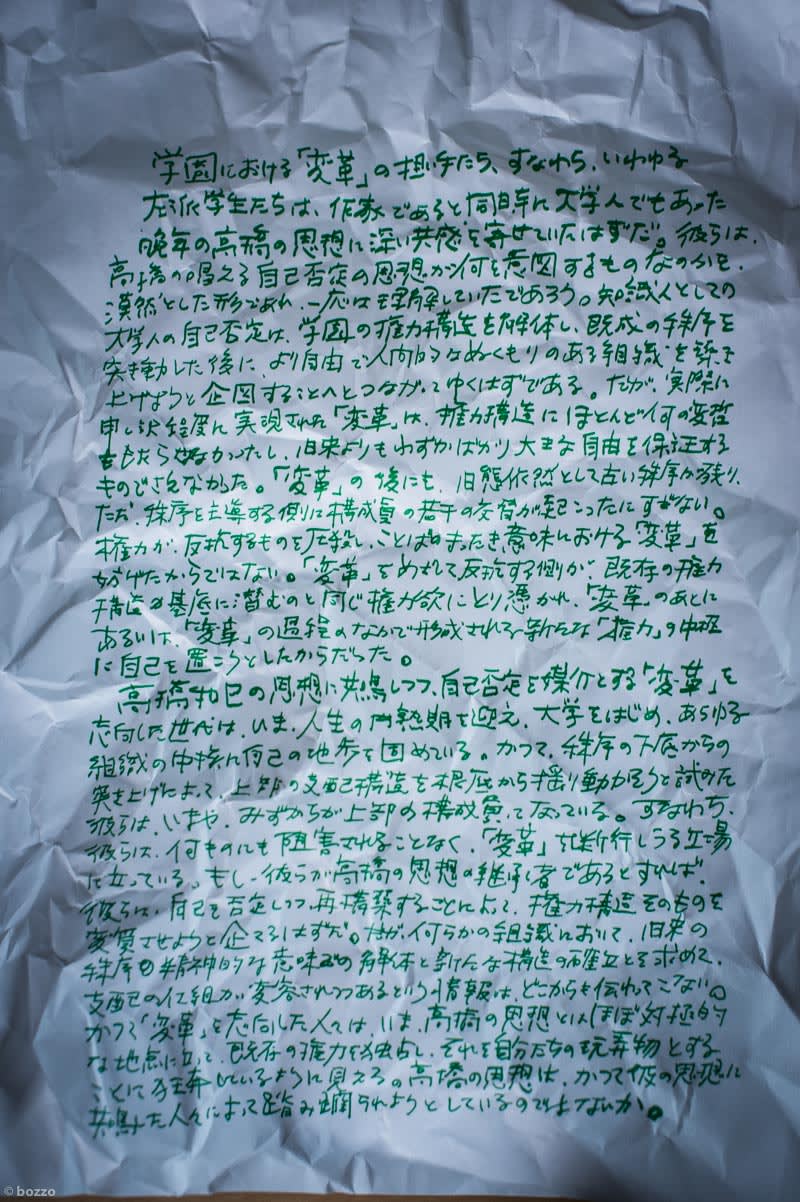 学園における「変革」の担い手たち、すなわち、いわゆる
左派学生たちは、作家であると同時に大学人でもあった
晩年の高橋の思想に深い共感を寄せていたはずだ。彼らは、
高橋の唱える自己否定の思想が何を意図するものなのかを、
漠然とした形であれ、一応は理解していたであろう。知識人としての
大学人の自己否定は、学園の権力構造を解体し、既成の秩序を
突き動した後に、より自由で人間的なぬくもりのある組織を築き
上げようと企図することへとつながってゆくはずである。だが、実際に
申し訳程度に実現された「変革」は、権力構造にほとんど何の変哲
ももたらさなかったし、旧来よりもわずかばかり大きな自由を保証する
ものでさえなかった。「変革」の後にも、旧態依然として古い秩序が残り、
ただ、秩序を主導する側に構成員の若干の交替が起こったにすぎない。
権力が、反抗するものを圧殺し、ことばのまったき意味における「変革」を
妨げたからではない。「変革」をめざして反抗する側が、既存の権力
構造の基底に潜むのと同じ権力欲にとり憑かれ、「変革」のあとに
あるいは、「変革」の過程のなかで形成される新たな「権力」の中枢
に自己を置こうとしたからだった。
高橋和巳の思想に共鳴しつつ、自己否定を媒介とする「変革」を
志向した世代は、いま、人生の円熟期を迎え、大学をはじめ、あらゆる
組織の中核に自己の地歩を固めている。かつて、秩序の下底からの
突き上げによって、上部の支配構造を根底から揺り動かそうと試みた
彼らは、いまや、みずからが上部の構成員となっている。すなわち、
彼らは、何ものにも阻害されることなく、「変革」を断行しうる立場
に立っている。もし、彼らが高橋の思想の継承者であるとすれば、
彼らは、自己を否定しつつ再構築することによって、権力構造そのものを
変質させようと企てるはずだ。だが、何らかの組織において、旧来の
秩序の精神的な意味での解体と新たな構造の確立とを求めて、
支配の仕組が変容されつつあるという情報は、どこからも伝わってこない。
かつて「変革」を志向した人々は、いま、高橋の思想とはほぼ対極的
な地点に立って、既存の権力を独占し、それを自分たちの玩弄物とする
ことに狂奔しているように見える。高橋の思想は、かつて彼の思想に
共鳴した人々によって踏み躙られようとしているのではないか。
© bozzo